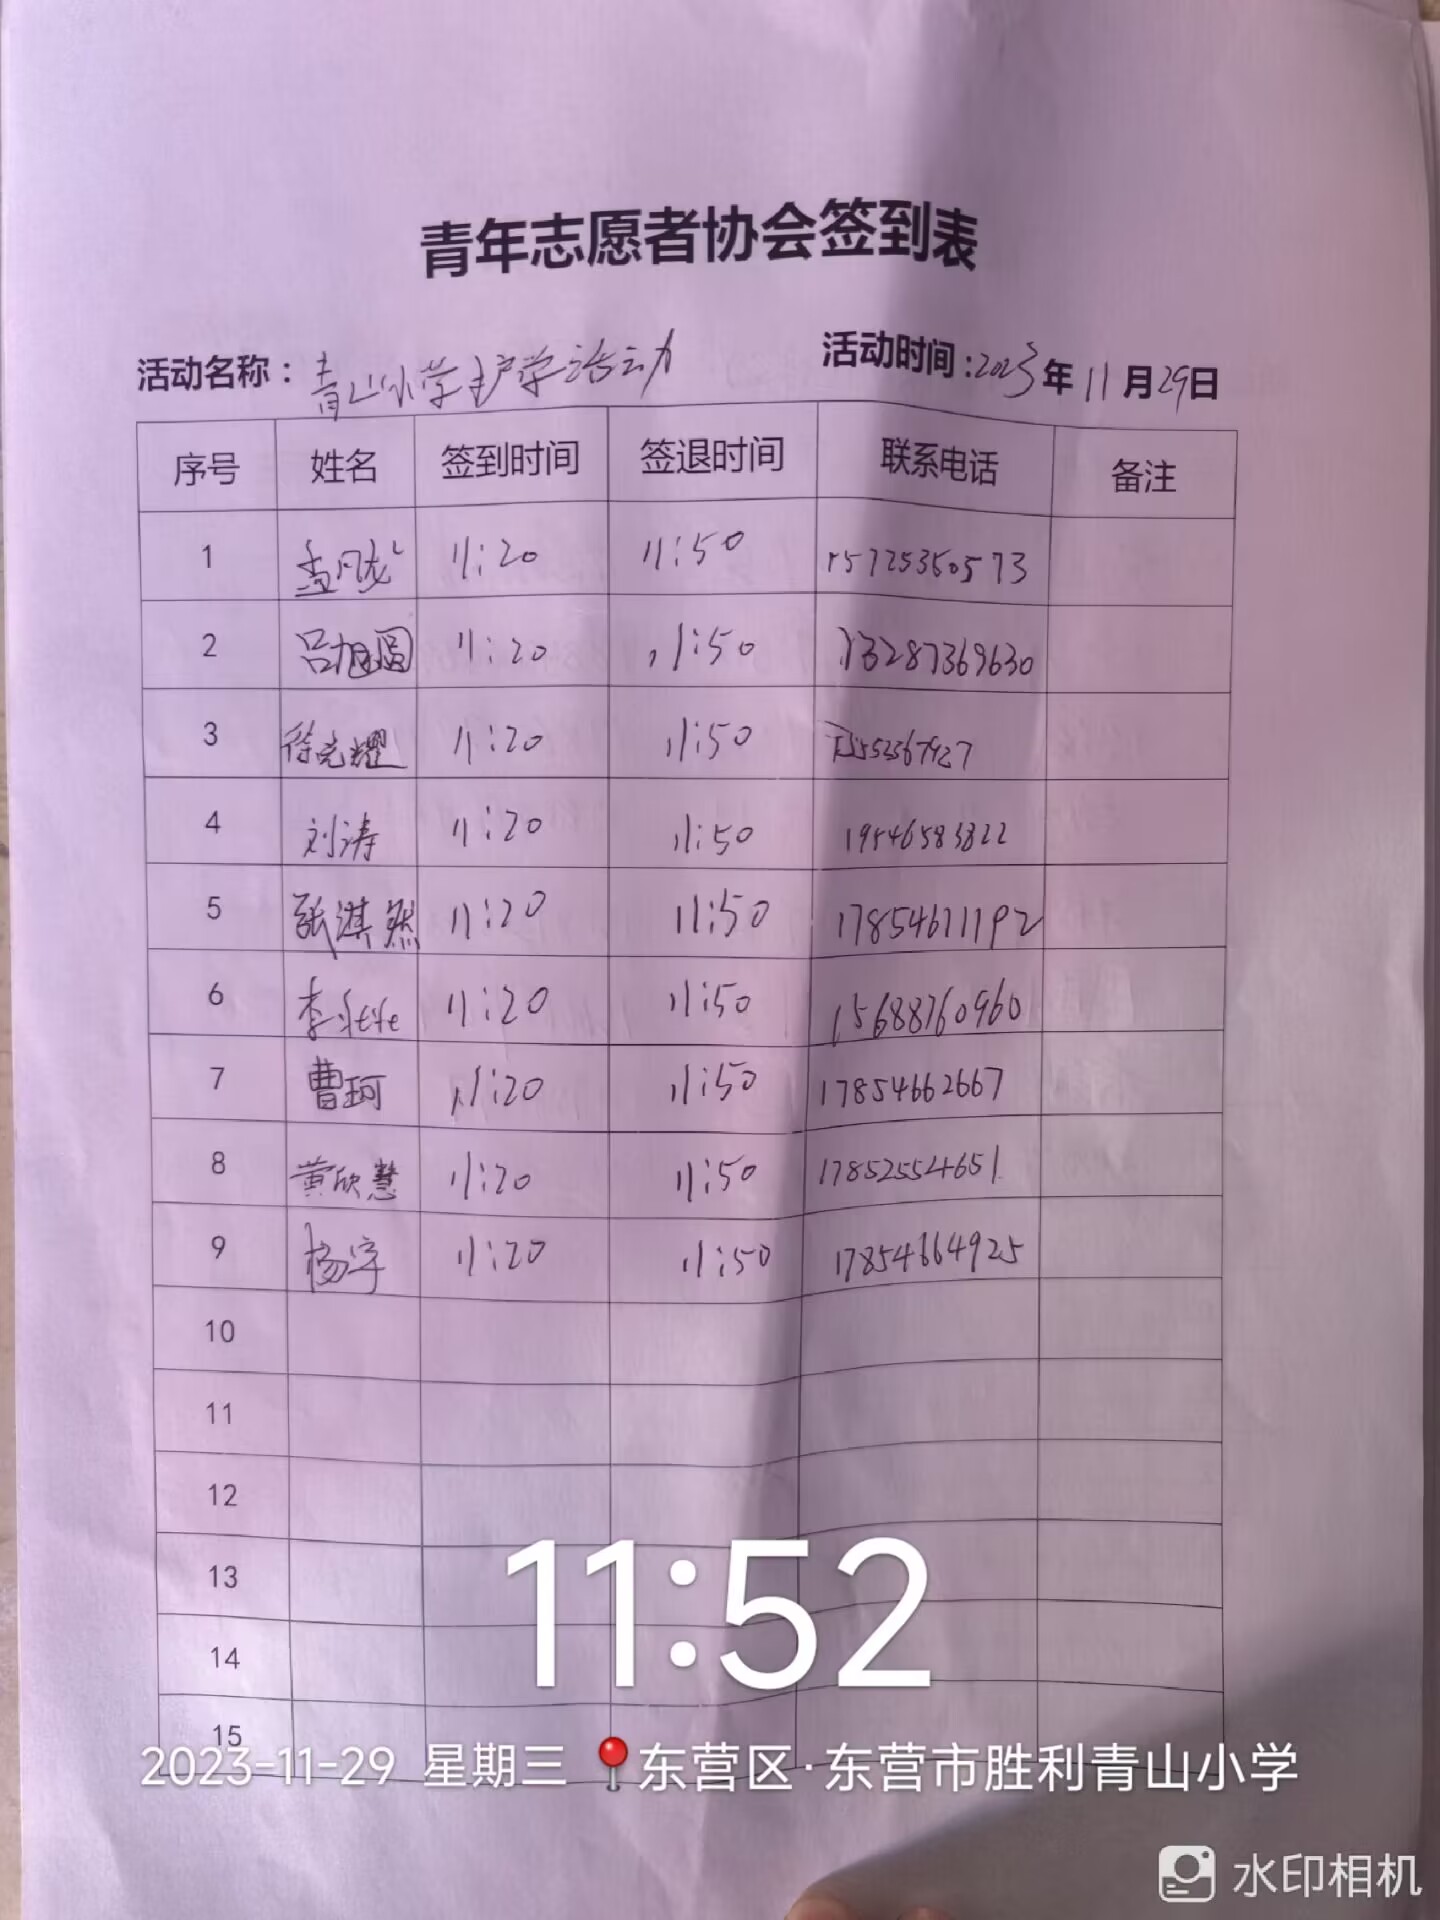 青年志愿者协会签到表
活动名称：青山小学护学活动 活动时间：2023年11月29日
序号 姓名 签到时间 签退时间 联系电话 备注
1 孟凡龙 11:20 11:50 15725350573
2 吕旭圆 11:20 11:50 13287369630
3 徐光耀 11:20 11:50
4 刘涛 11:20 11:50 19546583822
5 张淇然 11:20 11:50 17854611192
6 李 11:20 11:50 15688760960
7 曹珂 11:20 11:50 17854662667
8 黄欣慧 11:20 11:50 17852554651
9 杨宇 11:20 11:50 17854664925
10
11
12
13
14
15
11:52
2023-11-29 星期三 东营区·东营市胜利青山小学
水印相机